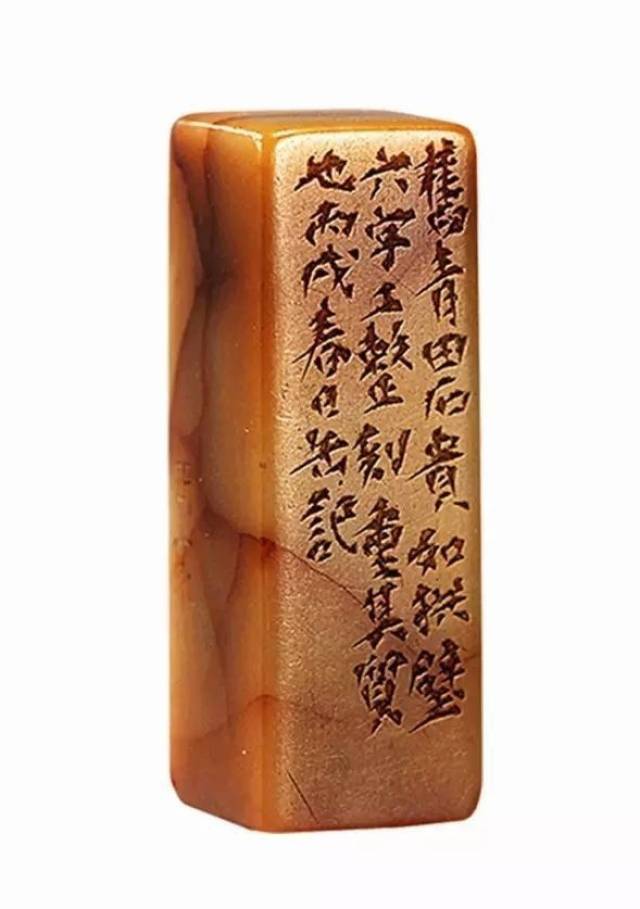 舊青田石貴如拱璧
六字工整刻重其質
也丙戌春日缶記